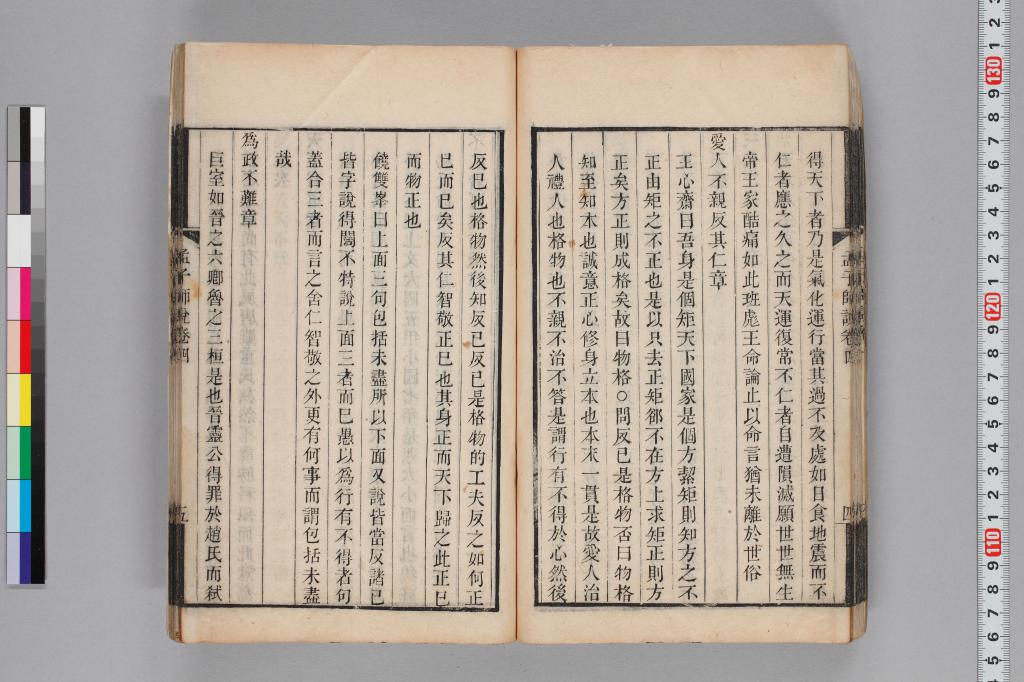 得天下者乃是氣化運行當其過不及處如日食地震而不
仁者應之久之而天運復常不仁者自遭隕滅願世世無生
帝王家酷痛如此班彪王命論止以命言猶未離於世俗
愛人不親反其仁章
王心齋曰吾身是個矩天下國家是個方絜矩則知方之不
正由矩之不正也是以只去正矩郤不在方上求矩正則方
正矣方正則成格矣故曰物格○問反已是格物否曰物格
知至知本也誠意正心修身立本也本末一貫是故愛人治
人禮人也格物也不親不治不答是謂行有不得於心然後
孟子師說卷四
四
反巳也格物然後知反已反已是格物的工夫反之如何正
巳而巳矣反其仁智敬正巳也其身正而天下歸之此正巳
而物正也
饒雙峯曰上面三句包括未盡所以下面又說皆當反諸已
皆字說得闊不特說上面三者而巳愚以為行有不得者句
蓋合三者而言之舍仁智敬之外更有何事而謂包括未盡
哉
為政不難章
巨室如晉之六卿魯之三桓是也晉靈公得罪於趙氏而弒
孟子師說卷四
五
130
120
110